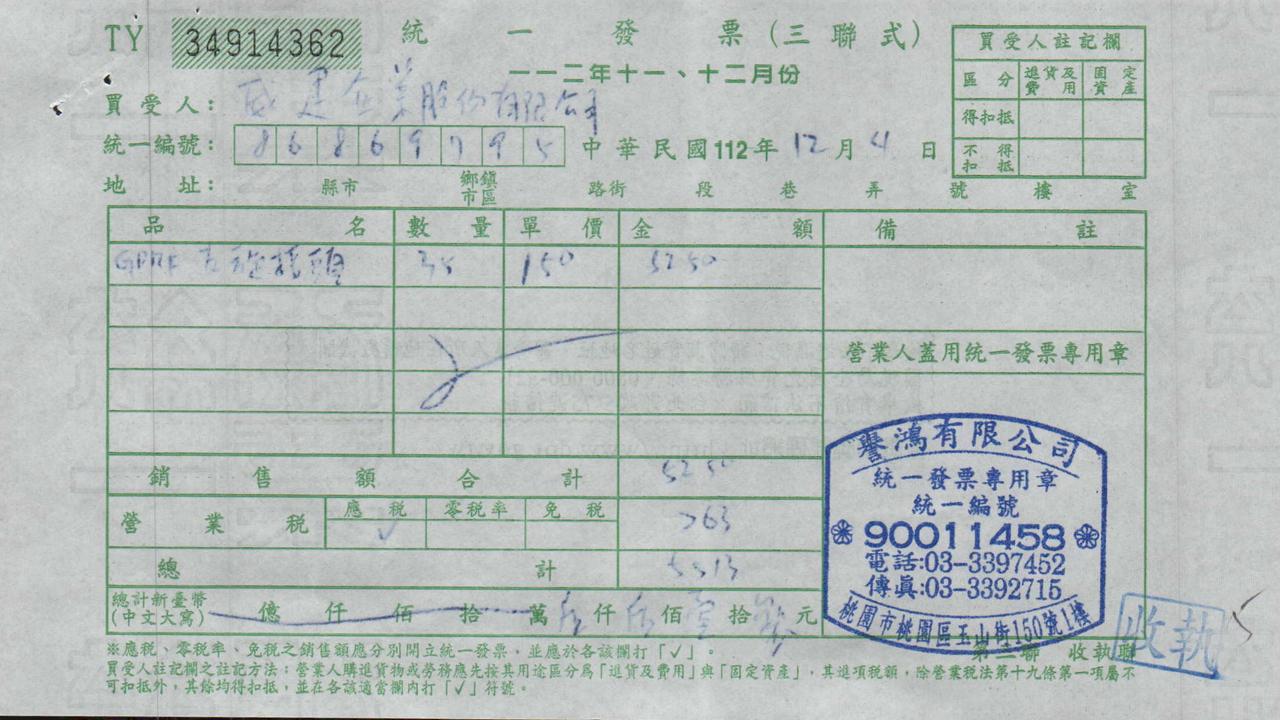 TY 34914362 統一發票(三聯式)
一一二年十一、十二月份
買受人註記欄
區分 進貨及費用 固定資產
得扣抵
不得扣抵
買受人: 企業股份有限公司
統一編號: 86869795 中華民國112年12月4日
地址: 縣市 鄉鎮市區 路街 段 巷 弄 號 樓 室
品名 數量 單價 金額 備註
35 150 5250
營業人蓋用統一發票專用章
銷售額合計 5250
營業稅 應稅 零稅率 免稅 263
✓
總計 5513
總計新臺幣(中文大寫) 億 仟 佰 拾 萬 伍仟伍佰壹拾 元
譽鴻有限公司
統一發票專用章
統一編號
90011458
電話:03-3397452
傳眞:03-3392715
桃園市桃園區玉山街150號1樓
第三聯 收執聯
收執
5
※應稅、零稅率、免稅之銷售額應分別開立統一發票,並應於各該欄打「✓」。
買受人註記欄之註記方法:營業人購進貨物或勞務應先按其用途區分為「進貨及費用」與「固定資產」,其進項稅額,除營業稅法第十九條第一項屬不
可扣抵外,其餘均得扣抵,並在各該適當欄內打「✓」符號。